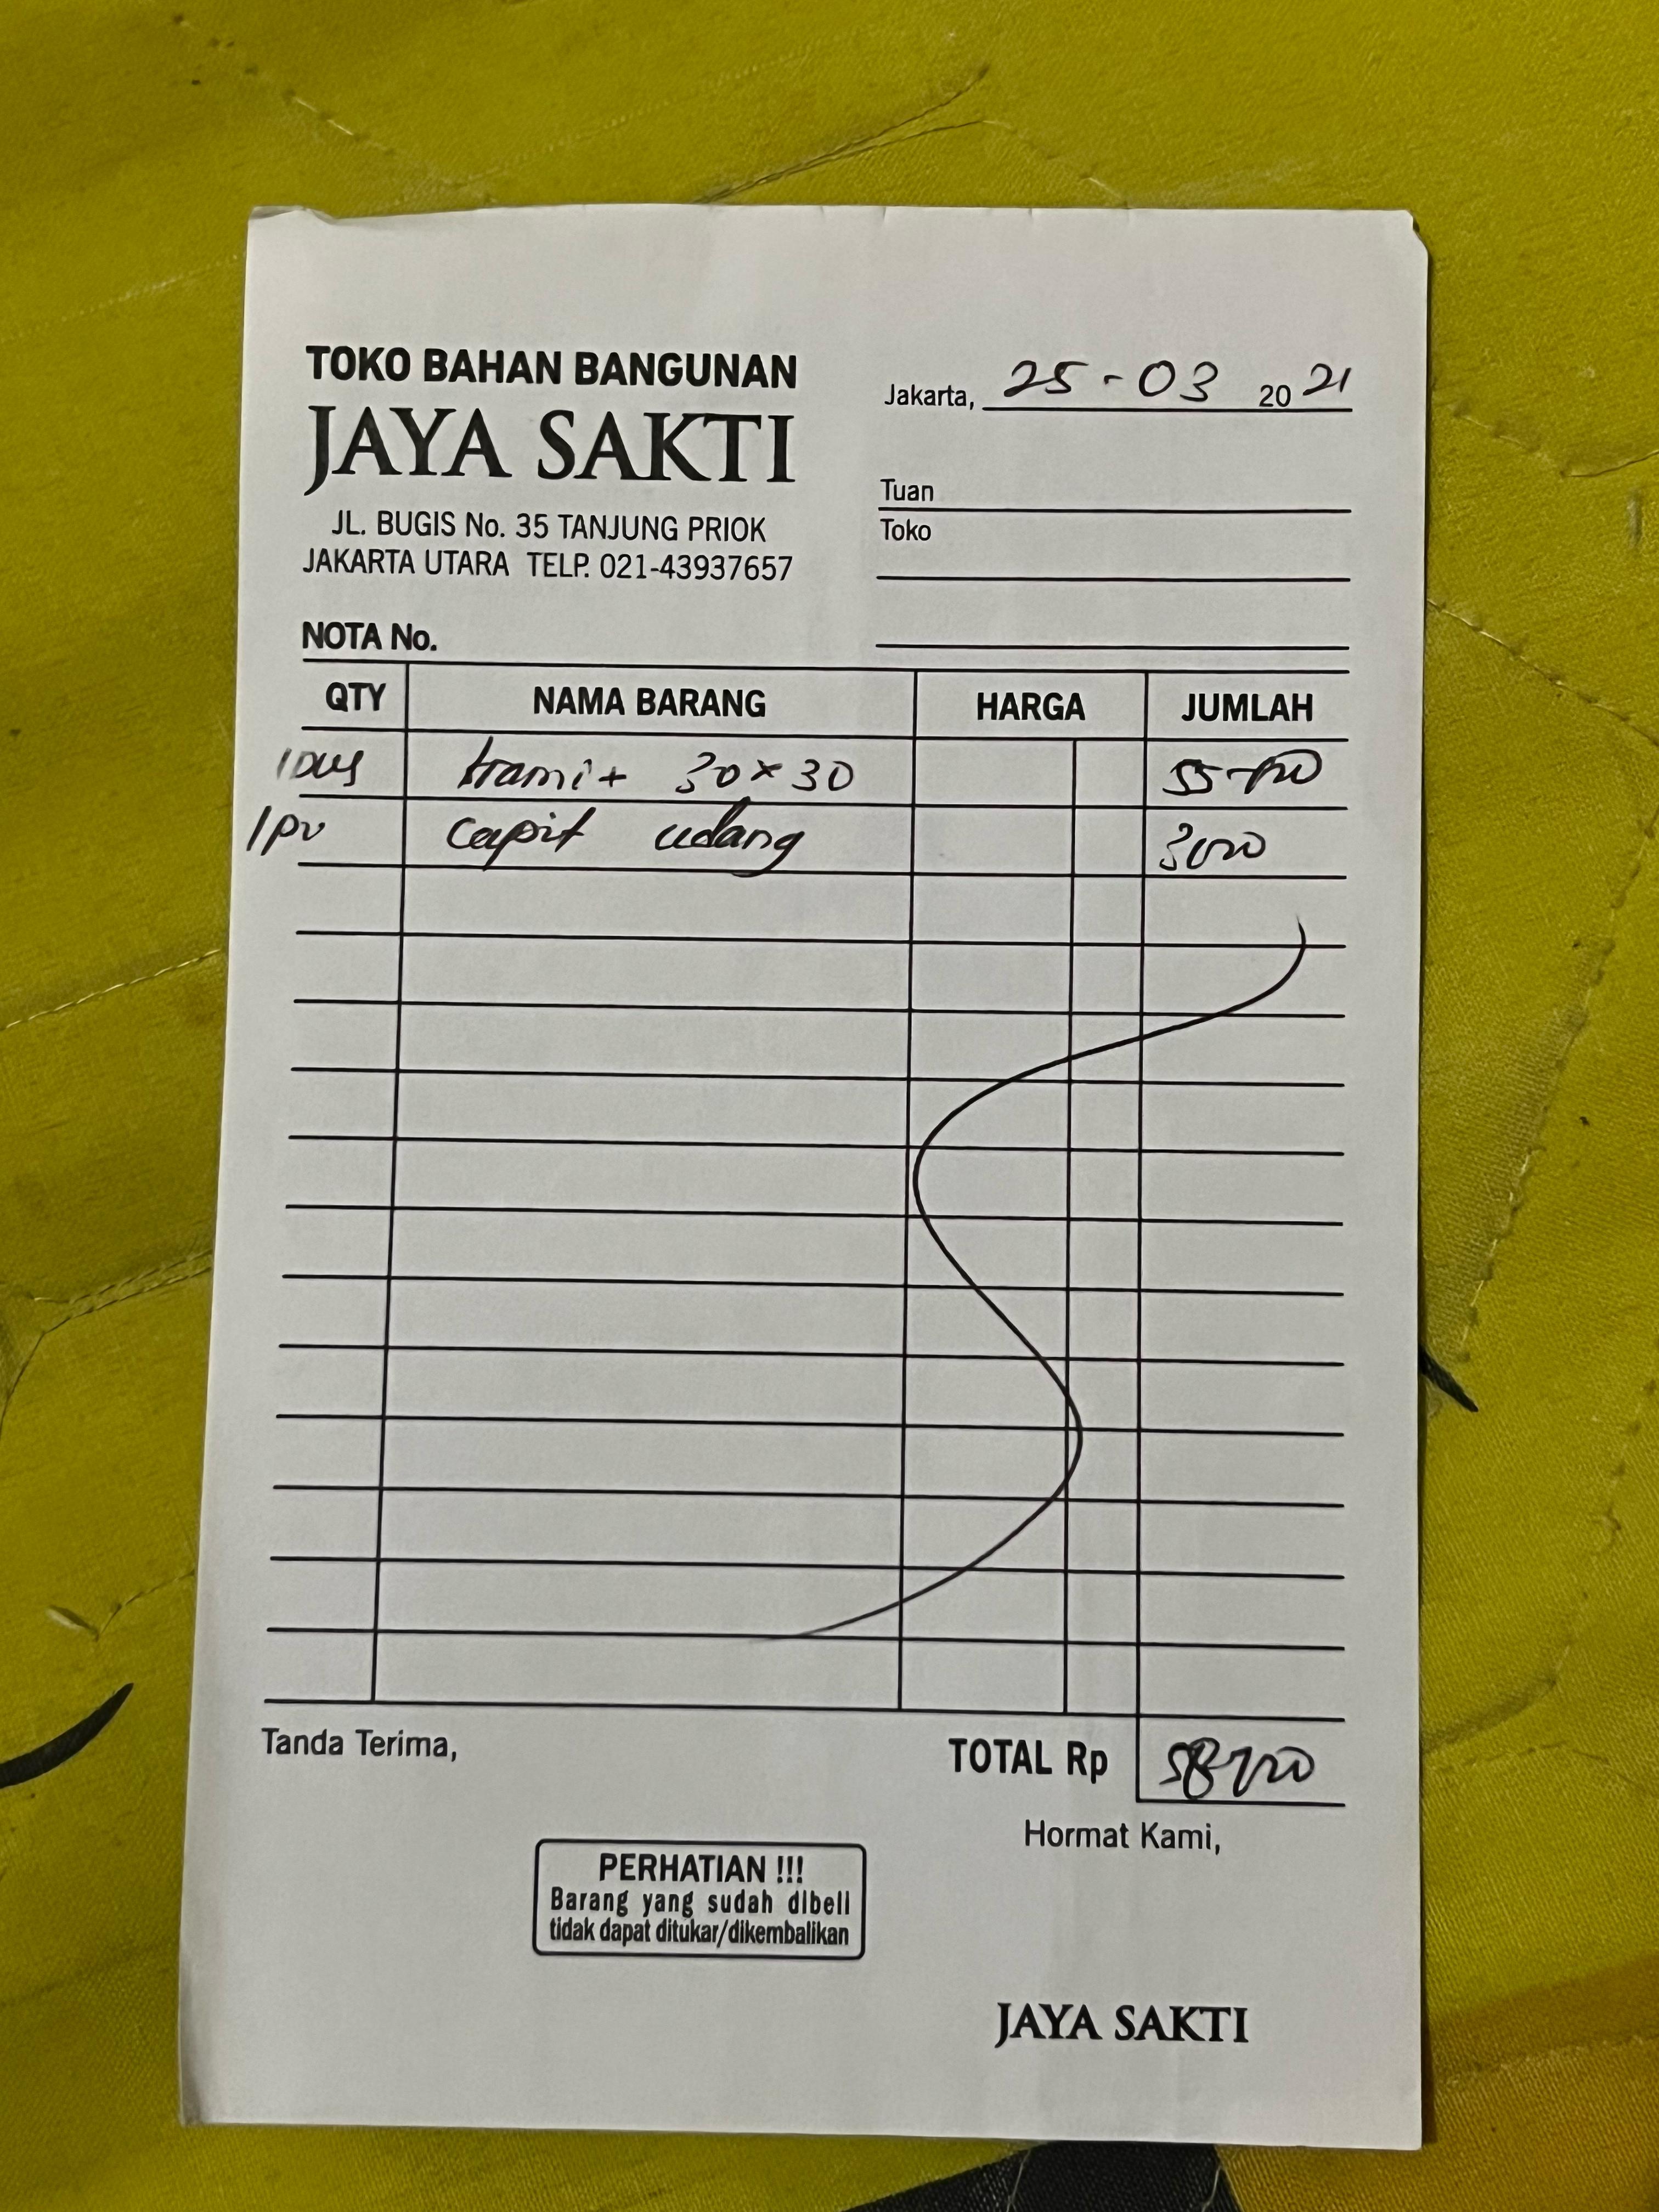 TOKO BAHAN BANGUNAN
JAYA SAKTI
JL. BUGIS No. 35 TANJUNG PRIOK
JAKARTA UTARA TELP. 021-43937657
Jakarta, 25-03 2021
Tuan
Toko
NOTA No.
QTY NAMA BARANG HARGA JUMLAH
1 dus 30x30 55-000
1 capit udang 3000
Tanda Terima,
TOTAL Rp 58000
Hormat Kami,
PERHATIAN !!!
Barang yang sudah dibeli
tidak dapat ditukar/dikembalikan
JAYA SAKTI